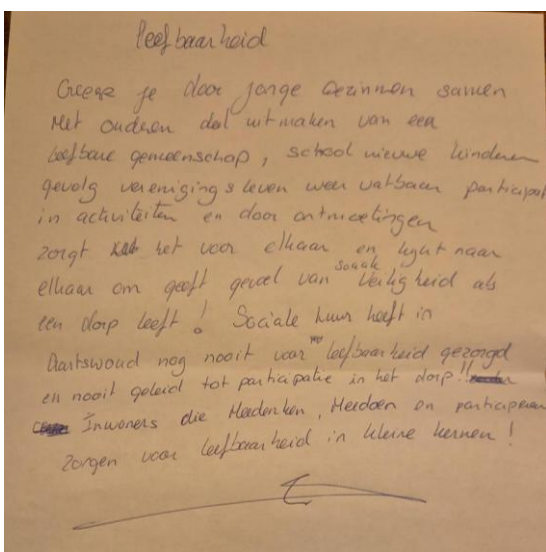 leefbaarheid
Creeer je door jonge gezinnen samen
Met ouderen deel uitmaken van een
leefbare gemeenschap, school nieuwe kinderen
gevolg verenigingsleven weer vatbaar participat
in activiteiten en door ontmoetingen
zorgt het voor elkaar en kijkt naar
elkaar om geeft gevoel van sociale Veiligheid als
een dorp leeft! Sociale huur heeft in
Aartswoud nog nooit voor leefbaarheid gezorgd
en nooit geleid tot participatie in het dorp!!
Inwoners die Meedenken, Meedoen en participeren
Zorgen voor leefbaarheid in kleine kernen!